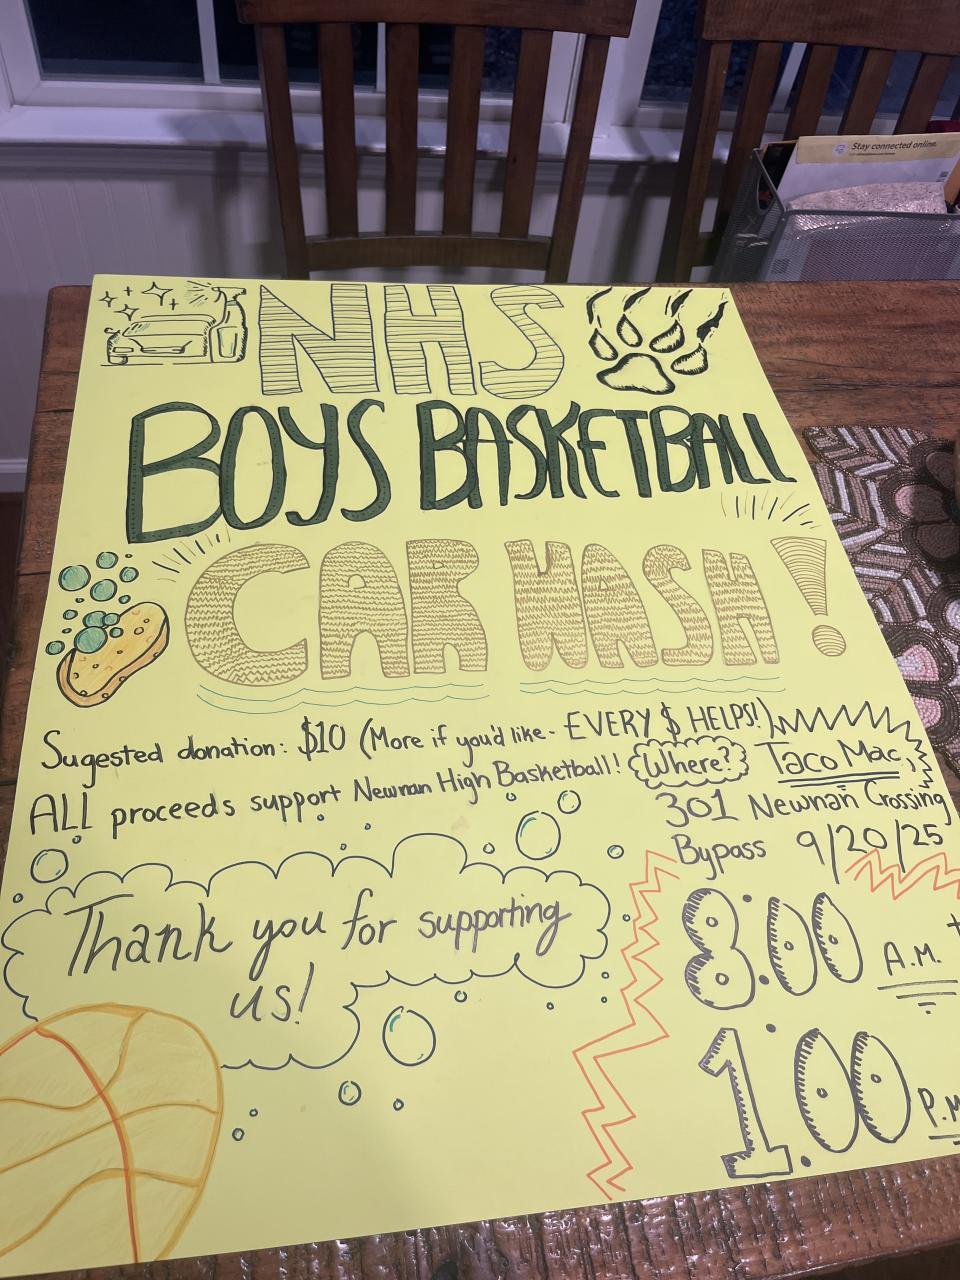 Stay connected online.
NHS
BOYS BASKETBALL
CAR WASH!
Sugested donation: $10 (More if you'd like - EVERY $ HELPS!)
ALL proceeds support Newnan High Basketball!
Where? Taco Mac,
301 Newnan Crossing
Bypass 9/20/25
8:00 A.M.
1:00 P.M
Thank you for supporting
us!